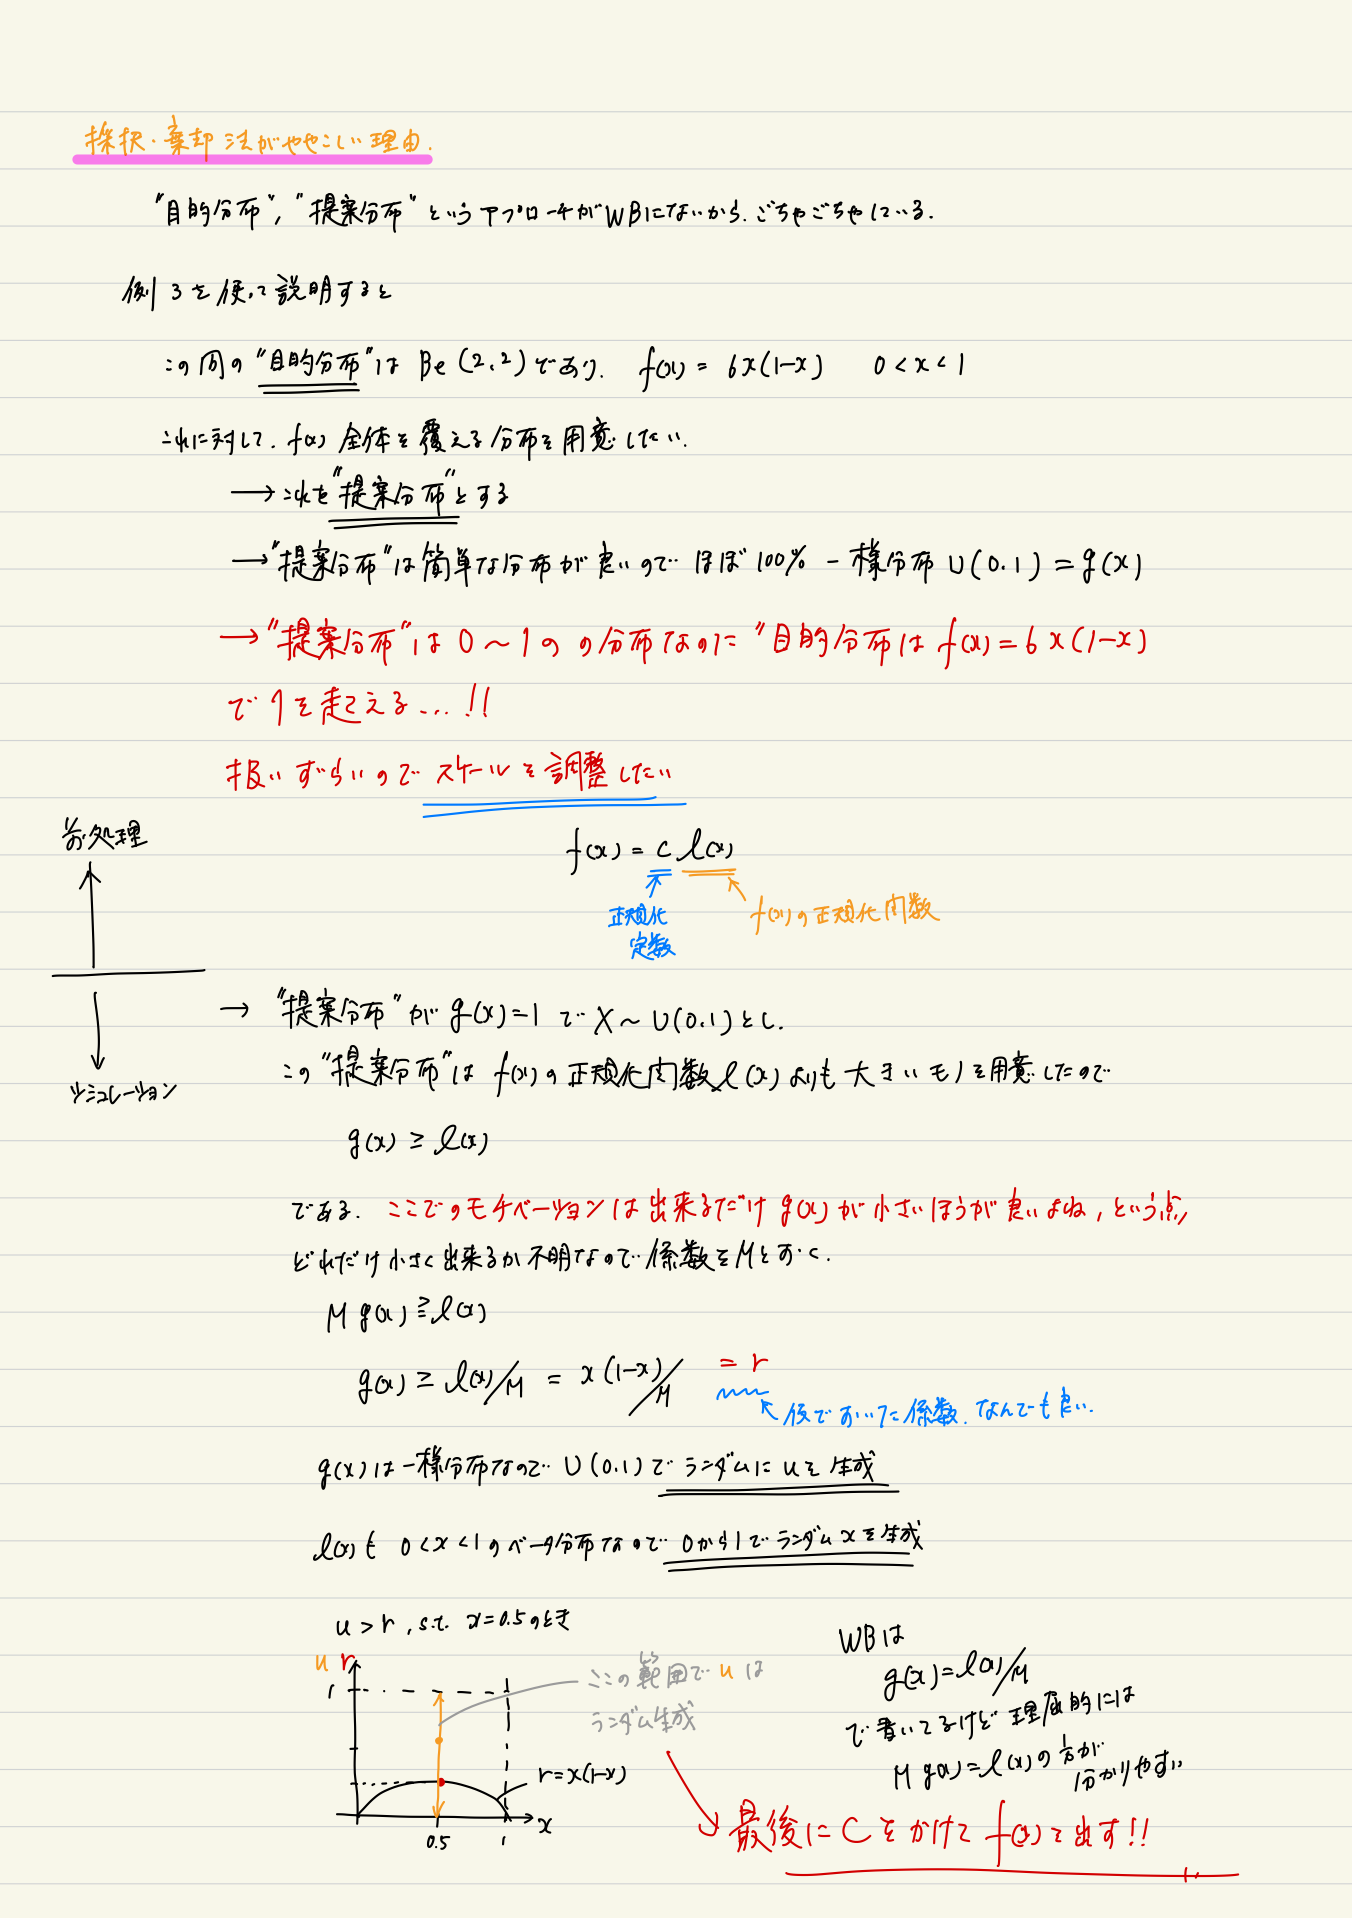 採択・棄却法がややこしい理由.
"目的分布", "提案分布" というアプローチがWBにないから. ごちゃごちゃしている.
例3を使って説明すると
この問の"目的分布"は Be(2,2)であり. f(x) = 6x(1-x) 0<x<1
これに対して. f(x) 全体を覆える分布を用意したい.
→ これを"提案分布"とする
→ "提案分布"は簡単な分布が良いので ほぼ100% 一様分布 U(0.1) = g(x)
→ "提案分布"は0〜1の の分布なのに "目的分布は f(x)=6x(1-x)
で 1を超える...!!
扱いずらいので スケールを調整したい
前処理
f(x) = c l(x)
正規化
定数
f(x)の正規化関数
シミュレーション
→ "提案分布"が g(x)=1 で X〜U(0.1)とし.
この"提案分布"は f(x)の正規化関数 l(x)よりも 大きいモノを用意したので
g(x) ≥ l(x)
である. ここでのモチベーションは出来るだけ g(x)が小さいほうが良いよね, という点,
どれだけ小さく出来るか不明なので 係数をMとおく.
M g(x) ≥ l(x)
g(x) ≥ l(x)/M = x(1-x)/M = r
後でおいた係数. なんでも良い.
g(x)は一様分布なので U(0.1)で ランダムに uを生成
l(x)も 0<x<1のベータ分布なので 0から1で ランダム xを生成
u>r, s.t. x=0.5のとき
u r
1
ここの範囲で u は
ランダム生成
r=x(1-x)
x
0.5
1
WBは
g(x)=l(x)/M
で書いてるけど 理屈的には
M g(x)=l(x)の方が
分かりやすい
最後に Cをかけて f(x)を出す!!